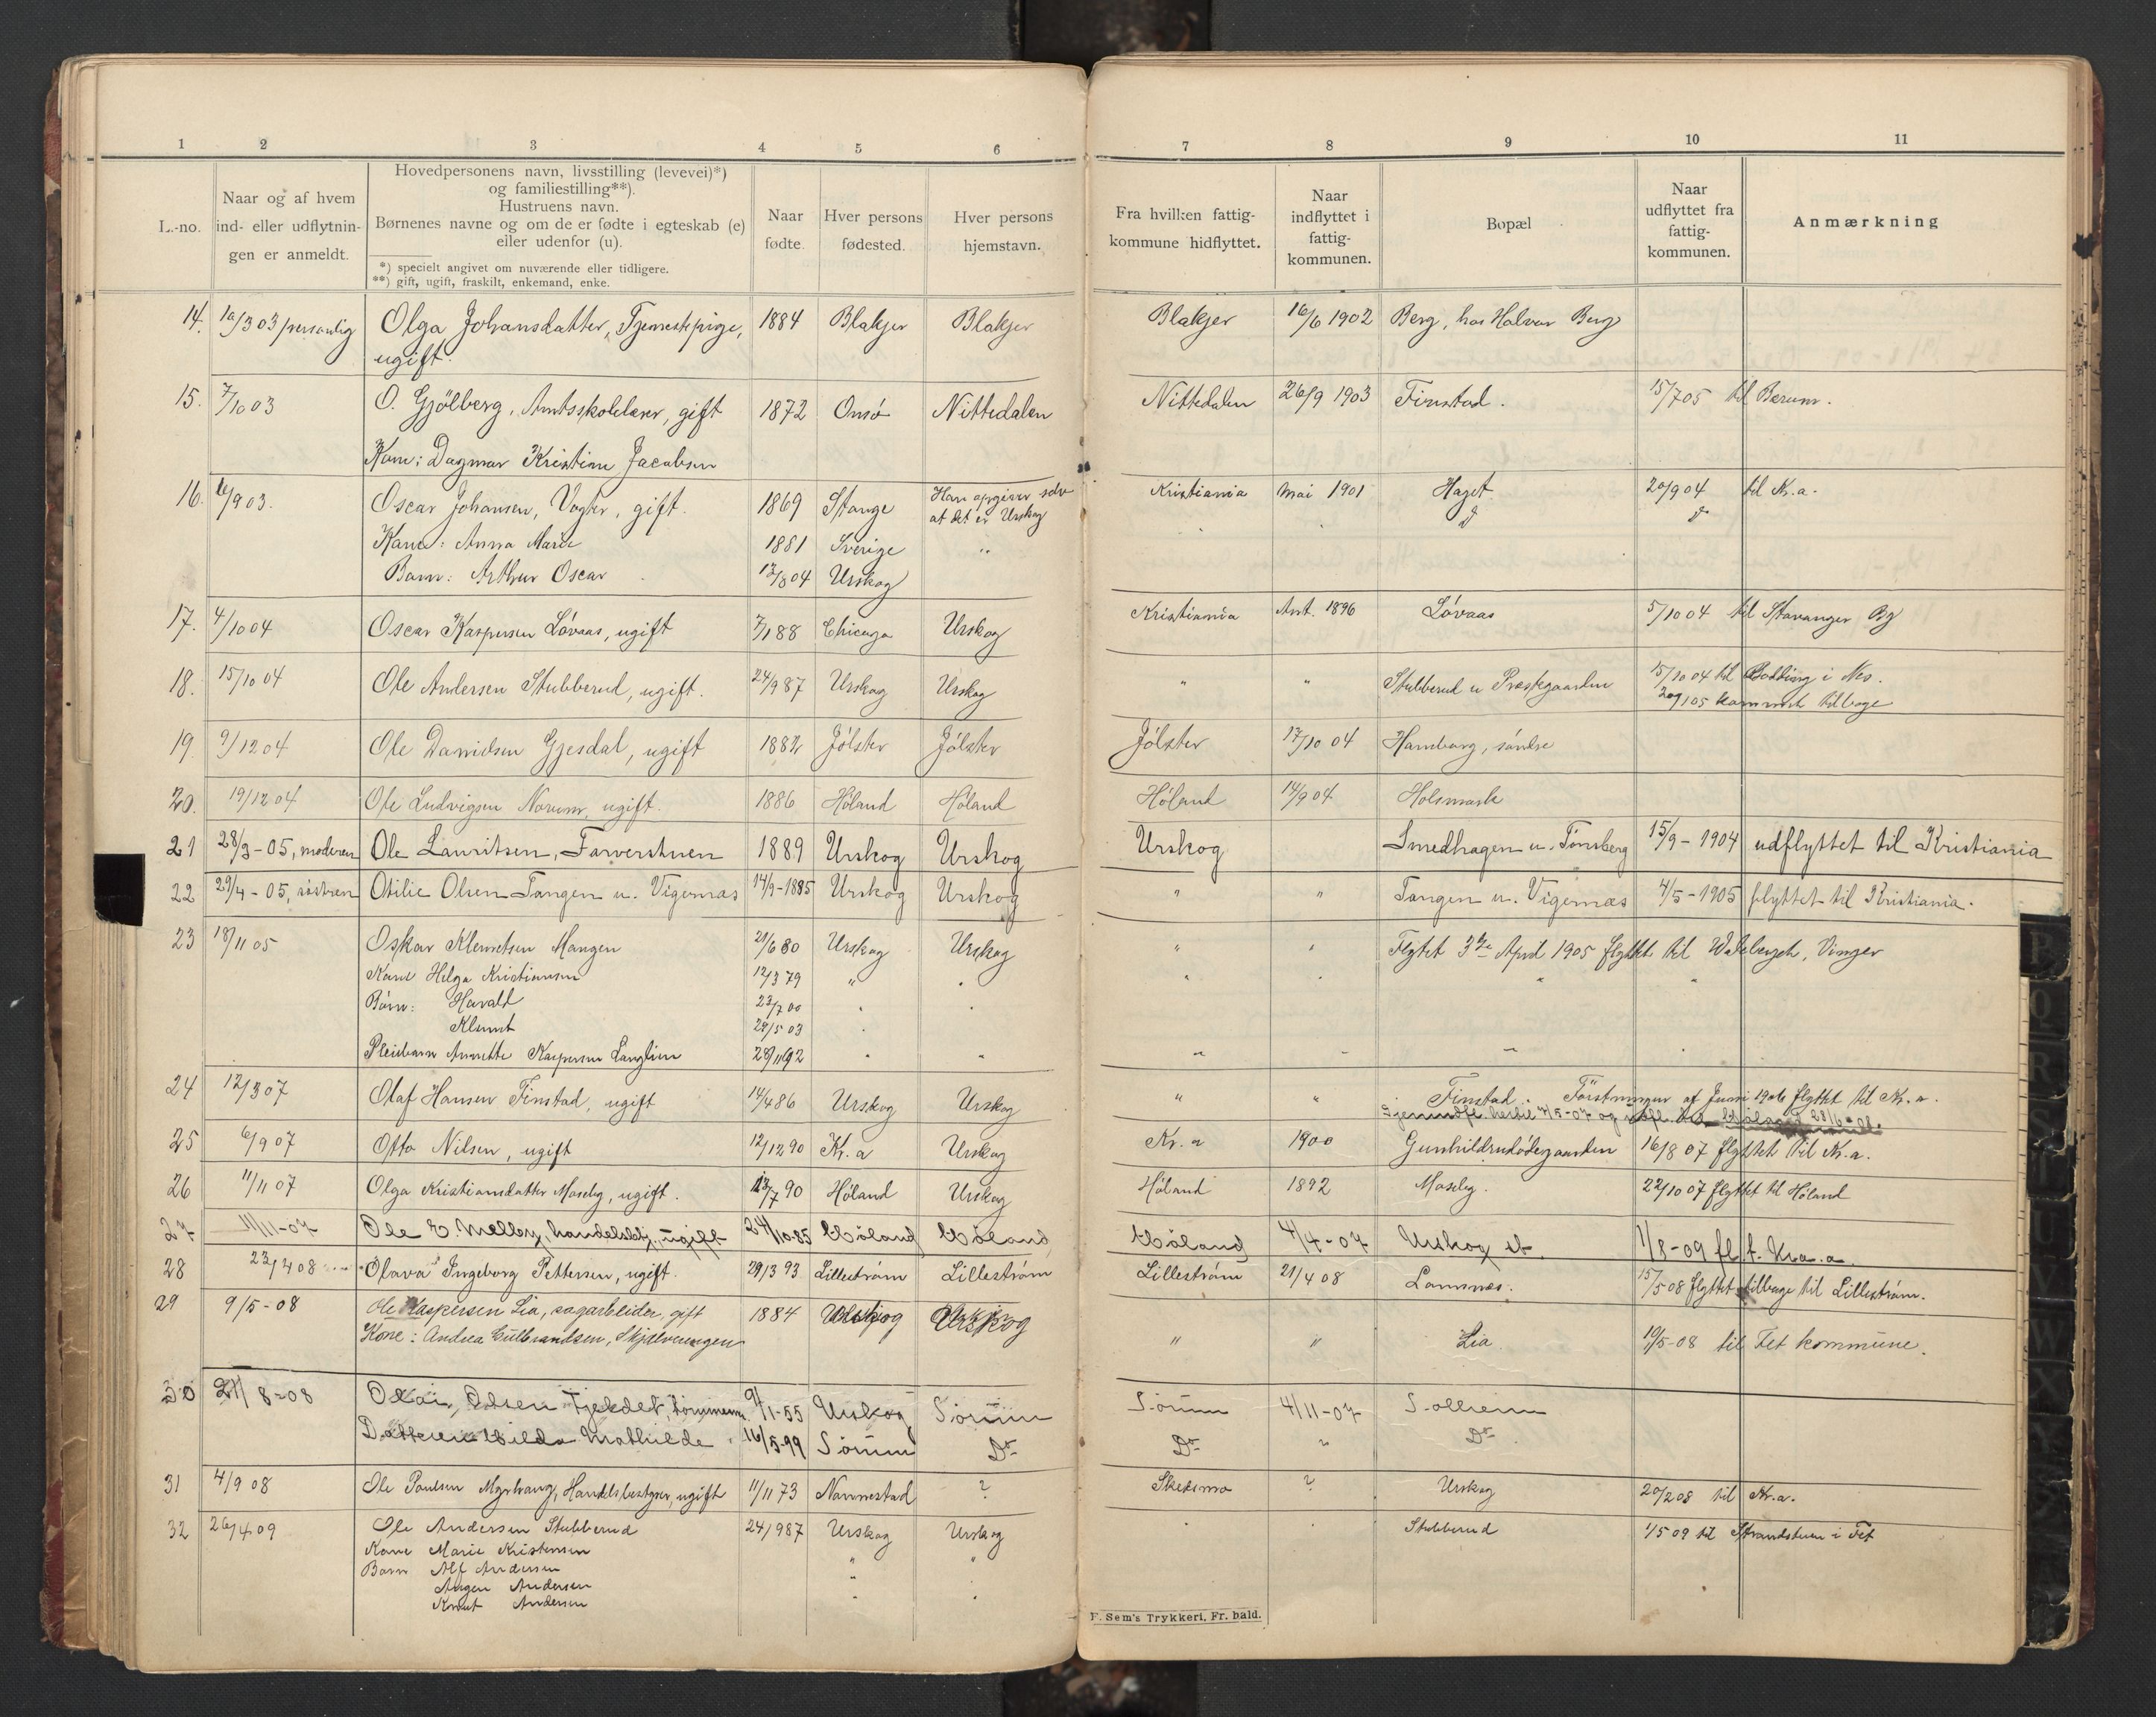 1 2 3 4 5 6 7 8 9 10 11
L.-no.
Naar og af hvem
ind- eller udflytnin-
gen er anmeldt.
Hovedpersonens navn, livsstilling (levevei)*)
og familiestilling**).
Hustruens navn.
Børnenes navne og om de er fødte i egteskab (e)
eller udenfor (u).
*) specielt angivet om nuværende eller tidligere.
**) gift, ugift, fraskilt, enkemand, enke.
Naar
fødte.
Hver persons
fødested.
Hver persons
hjemstavn.
Fra hvilken fattig-
kommune hidflyttet.
Naar
indflyttet i
fattig-
kommunen.
Bopæl
Naar
udflyttet fra
fattig-
kommunen.
Anmærkning
14. 10/3 03 personlig Olga Johansdatter, Tjenestepige, 1884 Blakjer Blakjer Blakjer 16/6 1902 Berg, hos Halvor Berg
ugift.
15. 7/10 03 O. Gjölberg, Amtsskolelærer, gift 1872 Onsö Nittedalen Nittedalen 26/9 1903 Finstad. 15/7 05 til Berum.
Kone: Dagmar Kristine Jacobsen
16. 16/9 03. Oscar Johansen, Vogter, gift. 1869 Stange Han opgiver selv Kristiania Mai 1901 Haget 20/9 04 til Kr.a.
at det er Urskog
Kone: Anna Marie 1881 Sverige "
Barn: Arthur Oscar 13/8 04 Urskog
17. 4/10 04 Oscar Kaspersen Lövaas, ugift 7/1 88 Chicago Urskog Kristiania Ant. 1896 Lövaas 5/10 04 til Stavanger By
18. 15/10 04 Ole Andersen Stubberud, ugift. 24/9 87 Urskog Urskog " " Stubberud u Præstegaarden 15/10 04 til Bodding i Nes.
20/1 05 kommet tilbage
19 9/12 04 Ole Danielsen Gjesdal, ugift 1882 Jölster Jölster Jölster 17/10 04 Hamborg, söndre
20. 19/12 04 Ole Ludvigsen Norum, ugift. 1886 Höland Höland Höland 14/9 04 Holsmark
21 28/3-05, moderen Ole Lauritsen, Farverstuen 1889 Urskog Urskog Urskog Smedhagen u. Tönsberg 15/9-1904 udflyttet til Kristiania
22 29/4-05, söstren Otilie Olsen Tangen u. Vigernæs 14/9-1885 Urskog Urskog " " Tangen u. Vigernæs 4/5-1905 flyttet til Kristiania.
23 18/11 05 Oskar Klemetsen Mangen 21/6 80 Urskog Urskog " " Flytet 3die April 1905 flyttet til , Vinger
Kone Helga Kristiansen 12/3 79 " " " " " "
Börn: Harald 23/7 00 " "
Klemet 29/5 03 "
Pleiebarn Annette Kaspersen Langlien 28/11 92 " " " " " "
24 12/3 07 Olaf Hansen Finstad, ugift 14/4 86 Urskog Urskog " " Finstad. Förstningen af Juni 1906 flyttet til Kr.a.
Gjenindfl. hertil 7/5-07 og udfl. til Höland
25 6/9 07 Otto Nilsen, ugift 12/12 90 Kr.a Urskog Kr.a 1900 Gunhildrudödegaarden 16/8 07 flyttet til Kr.a.
26 11/11 07 Olga Kristiansdatter Moseby, ugift. 13/7 90 Höland Urskog Höland 1892 Moseby. 22/10 07 flyttet til Höland
27 11/11-07 Ole E. Melby, handelsbtj., ugift 24/10-85 Höland Höland Höland 4/4-07 Urskog st. 1/8-09 fl. t. Kra.a.
28 23/4 08 Olava Ingeborg Pettersen, ugift. 29/3 93 Lilleström Lilleström Lilleström 21/4 08 Lomnæs. 15/5 08 flyttet tilbage til Lilleström.
29 9/5-08 Ole Kaspersen Lia, sagarbeider, gift 1884 Urskog Urskog " " Lia 19/5-08 til Fet kommune.
Kone: Andrea Gulbrandsen, Skjelverengen
30 21/8-08 Olsen Tjeldet, 9/1-55 Urskog Sörum Sörum 4/11-07 Solheim
Datteren Hilda Mathilde 16/5-99 Sörum Do Do " Do
31 4/9 08 Ole Paulsen Myrhaug, Handelsbestyrer, ugift 11/11 73 Nannestad ? Skedsmo ? Urskog 20/2 08 til Kr.a.
32 26/4 09 Ole Andersen Stubberud 24/9 87 Urskog Urskog " " Stubberud 1/5 09 til Strandstuen i Fet
Kone Marie Kristensen " "
Barn Alf Andersen "
Andersen "
Knut Andersen " "
F. Sem's Trykkeri, Fr. hald.
P
Q
R
S
T
U
V
W
X
Y
Z